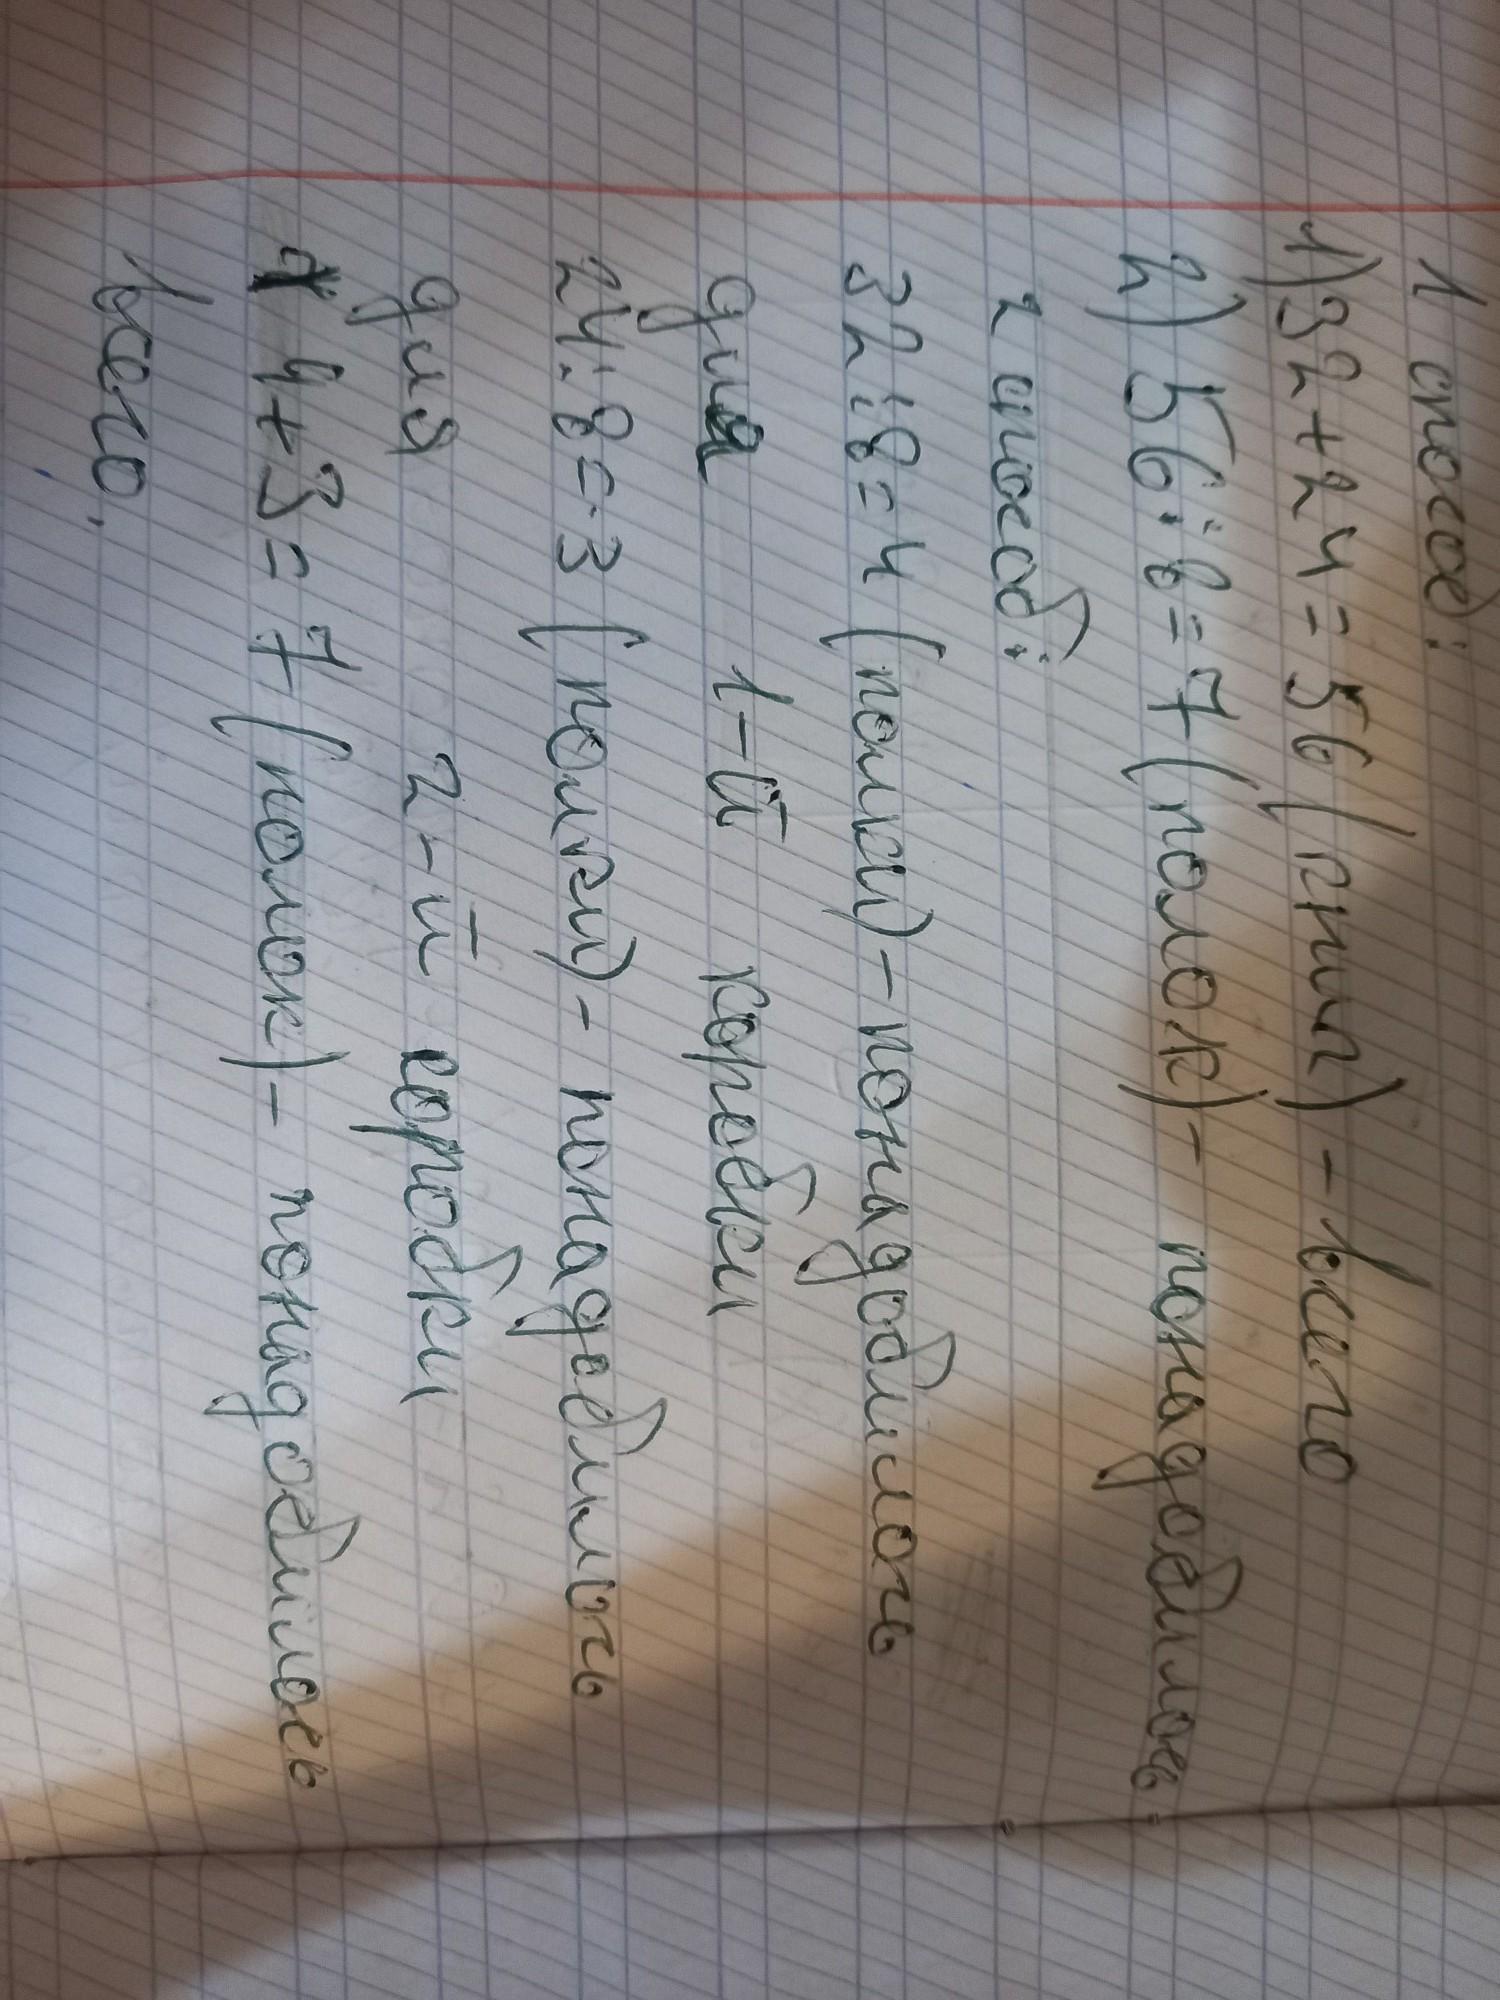 1 способ:
1) 32+24=56 (книг) - всего
2) 56:8=7 (полок) - понадобилось
2 способ:
32:8=4 (полки) - понадобилось
для 1-й коробки
24:8=3 (полки) - понадобилось
для 2-й коробки
4+3=7 (полок) - понадобилось
всего.